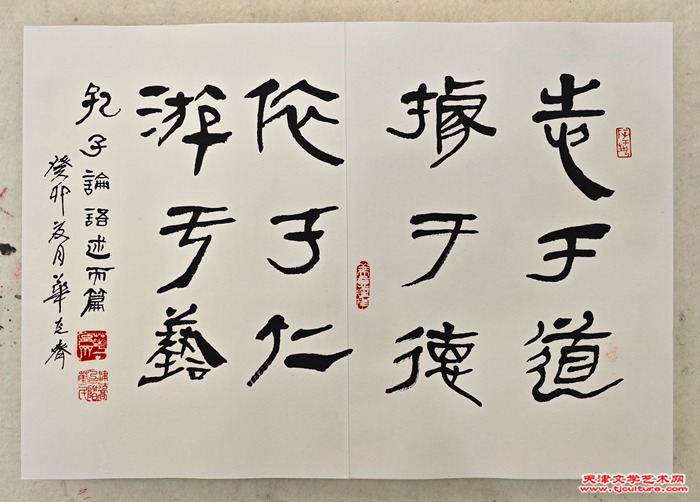 志于道
據于德
依于仁
游于藝
孔子論語述而篇
癸卯夏月華
天津文学艺术网
www.tjculture.com